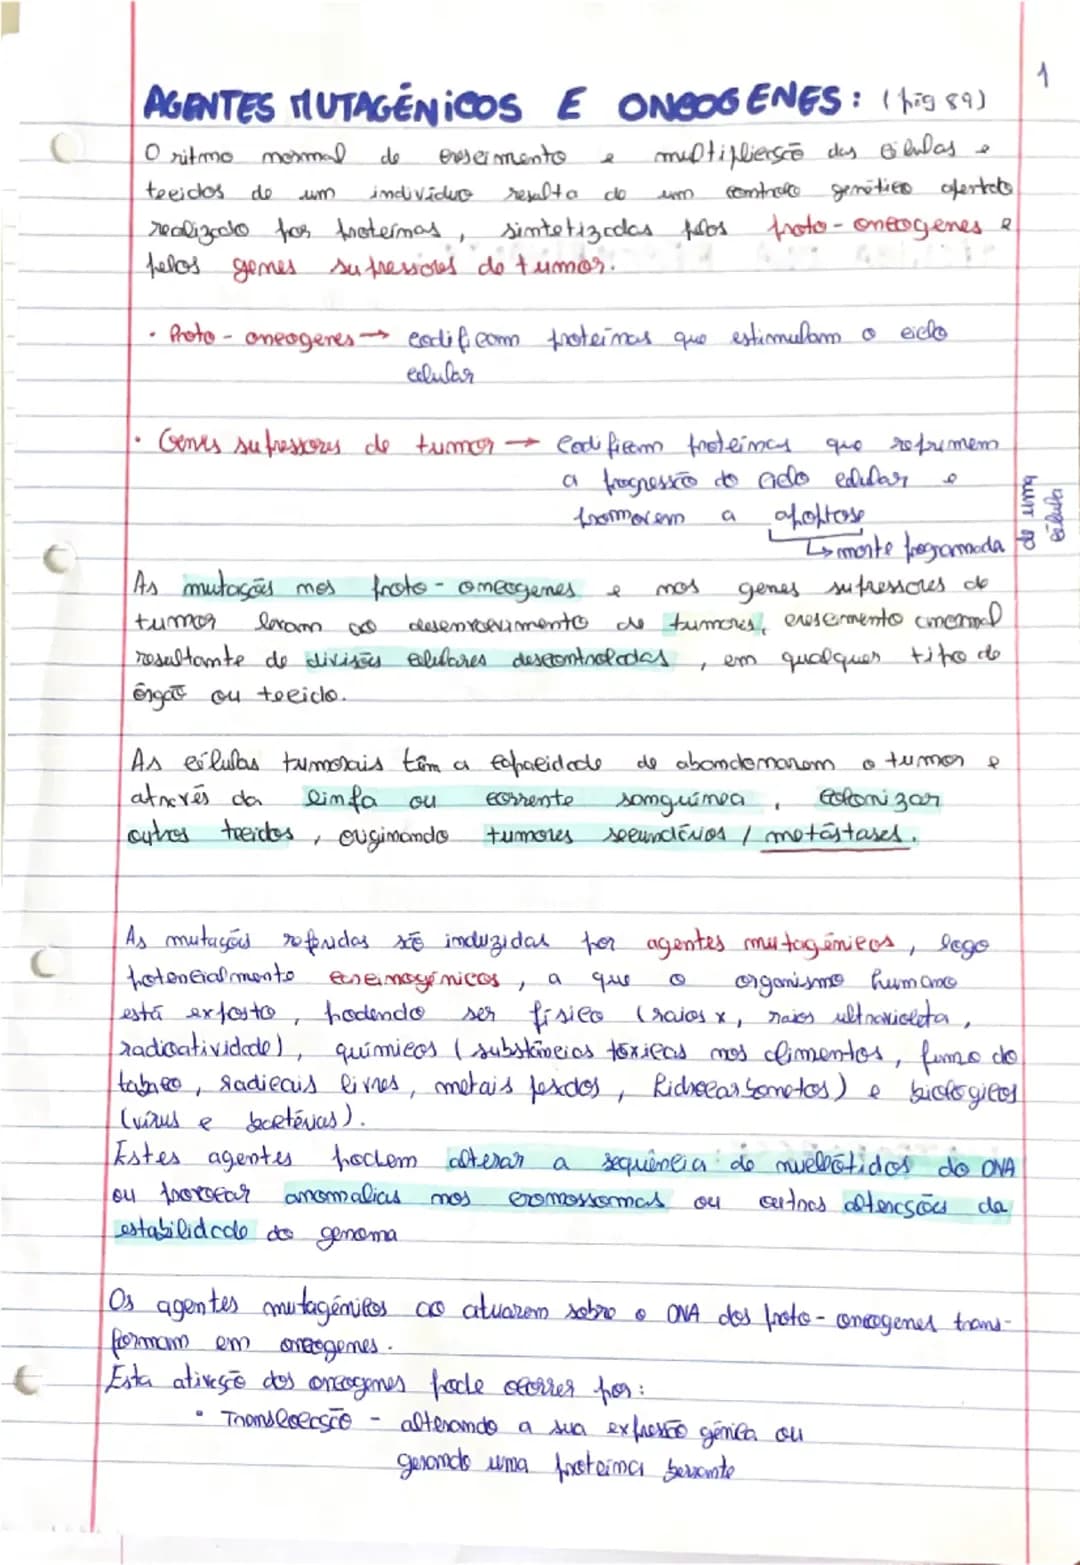 1
AGENTES MUTAGÉNICOS E ONCOGENES: (pig 89)
O ritmo normal de crescimento e multiplicação das células e
tecidos de um indivíduo resulta de um controlo genético apertado
realizado por proteínas, sintetizadas pelos proto-oncogenes e
pelos genes supressores de tumor.
• Proto-oncogenes → codificam proteínas que estimulam o ciclo
celular
• Genes supressores de tumor → Codificam proteínas que reprimem
a progressão do ciclo celular e
promovem a apoptose
↳ morte programada
de uma
célula
As mutações nos proto-oncogenes e nos genes supressores de
tumor levam ao desenvolvimento de tumores, crescimento anormal
resultante de divisões celulares descontroladas, em qualquer tipo de
órgão ou tecido.
As células tumorais têm a capacidade de abandonarem o tumor e
através da linfa ou corrente sanguínea, colonizar
outros tecidos, originando tumores secundários / metástases.
As mutações referidas são induzidas por agentes mutagénicos, logo
potencialmente carcinogénicos, a que o organismo humano
está exposto, podendo ser físico (raios x, raios ultravioleta,
radioatividade), químicos (substâncias tóxicas nos alimentos, fumo do
tabaco, radicais livres, metais pesados, hidrocarbonetos) e biológicos
(vírus e bactérias).
Estes agentes podem alterar a sequência de nucleótidos do DNA
ou provocar anomalias nos cromossomas ou outras alterações da
estabilidade do genoma
Os agentes mutagénicos ao atuarem sobre o DNA dos proto-oncogenes trans-
formam em oncogenes.
Esta ativação dos oncogenes pode ocorrer por:
• Translocação - alterando a sua expressão génica ou
gerando uma proteína